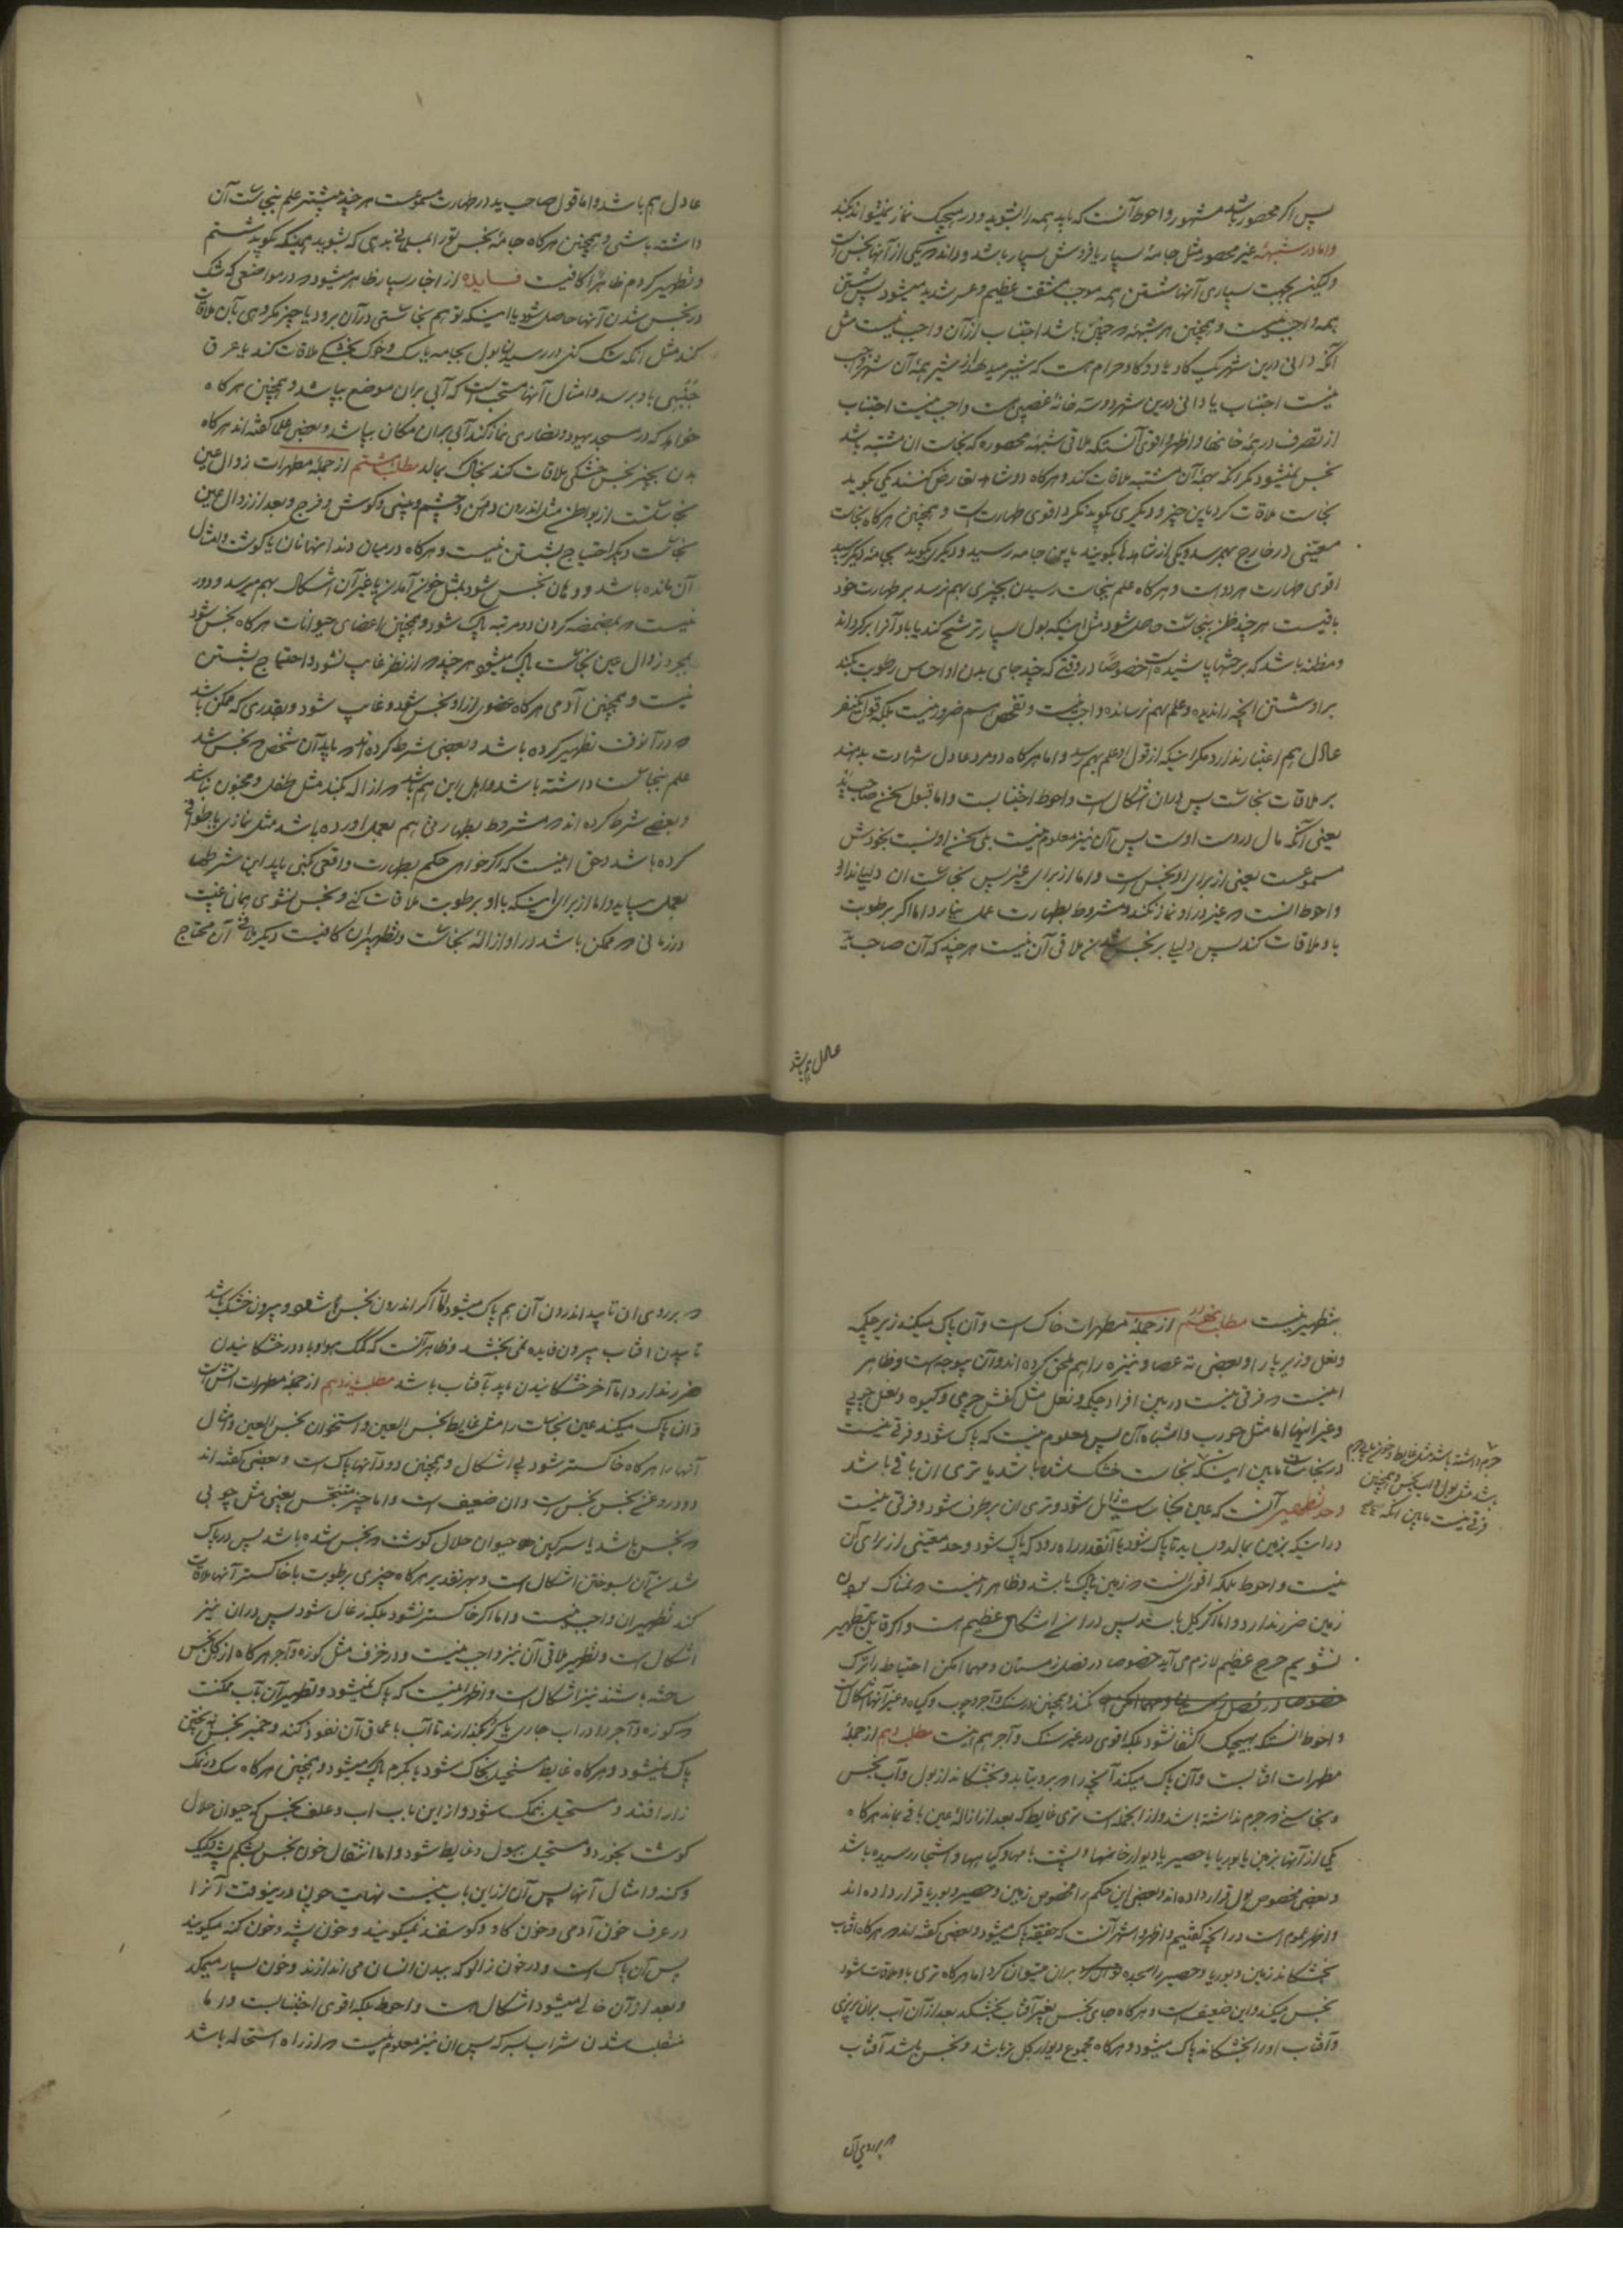 پس اگر محصور باشد مشهور و احوط آنست که باید همه را بشوید و در هیچیک نماز نمیتواند بکند
و اما در شبهه غیر محصور مثل جامهٔ بسیار یا فرش بسیار باشد و داند که یکی از آنها نجس است
ولیکن بجهت بسیاری آنها شستن همه موجب مشقت عظیم و عسر شدید میشود پس شستن
همه واجب نیست و همچنین هر شبهه که چنین باشد اجتناب از آن واجب نیست مثل
آنکه دانی درین شهر یک گاو یا دو گاو حرام هست که شیر میدهد از شیر همهٔ آن شهر واجب
نیست اجتناب یا دانی درین شهر دو سه خانهٔ غصبی هست واجب نیست اجتناب
از تصرف در همهٔ خانها و اظهر و اقوی آنستکه ملاقی شبههٔ محصوره که نجاست آن مشتبه باشد
نجس نمیشود مگر آنکه بهمهٔ آن مشتبه ملاقات کند و هرگاه دو شاهد تعارض کنند یکی بگوید
نجاست ملاقات کرد باین چیز و دیگری بگوید نکرد اقوی طهارتست و همچنین هرگاه نجاست
معیّنی در خارج بهم رسد و یکی از شاهدها بگویند باین جامه رسید و دیگری بگوید بجامهٔ دیگر رسید
اقوی طهارت هر دو است و هرگاه علم بنجاست رسیدن بچیزی بهم نرسد بر طهارت خود
باقیست هر چند ظن بنجاست حاصل شود مثل اینکه بول بسیار ترشح کند یا باد آنرا برگرداند
و مظنه باشد که بر جثها پاشیده است خصوصاً در وقتی که چند جای بدن او احساس رطوبت بکند
برو شستن آنچه را ندیده و علم بهم نرسانده واجب نیست و تفحص هم ضرور نیست بلکه قول یکنفر
عادل هم اعتبار ندارد مگر اینکه از قول او علم بهم رسد و اما هرگاه دو مرد عادل شهادت بدهند
بر ملاقات نجاست پس در آن اشکال است و احوط اجتنابست و اما قبول سخن صاحب ید
یعنی آنکه مال در دست اوست پس آن نیز معلوم نیست بلی سخن او نسبت بخودش
مسموعست یعنی از برای او نجس است و اما از برای غیر پس نجاست آن دلیلی ندارد
و احوط آنست که غیر در او نماز نکند و مشروط بطهارت عمل نیارد اما اگر برطوبت
باو ملاقات کند پس دلیلی بر نجس شدن ملاقی آن نیست هر چند که آن صاحب ید
عادل هم باشد
عادل هم باشد و اما قول صاحب ید در طهارت مسموعست هر چند پیشتر علم بنجاست آن
داشته باشی و همچنین هرگاه جامهٔ نجس تو را بمسلمانی بدهی که بشوید همینکه بگوید شستم
و تطهیر کردم ظاهراً کافیست فایده از اخبار بسیار ظاهر میشود که در مواضعی که شک
در نجس شدن آنها حاصل شود یا اینکه توهم نجاستی در آن برود یا چیز مکروهی بآن ملاقات
کند مثل آنکه شک کنی در رسیدن بول بجامه یا سگ و خوک بخشکی ملاقات کند یا عرق
جُنُبی باو برسد و امثال آنها مستحب است که آبی بر آن موضع بپاشد و همچنین هرگاه
خواهد که در مسجد یهود و نصاری نماز کند آبی بر آن مکان بپاشد و بعضی علما گفته‌اند هرگاه
بدن بچیز نجس خشکی ملاقات کند بخاک بمالد مطلب هشتم از جملهٔ مطهرات زوال عین
نجاستست از بواطن مثل اندرون دهن و چشم و بینی و گوش و فرج و بعد از زوال عین
نجاست دیگر احتیاج بشستن نیست و هرگاه در میان دندانها نان یا گوشت و امثال
آن مانده باشد و دهان نجس شود بمثل خون آمدن یا غیر آن اشکال بهم میرسد و دور
نیست که بمضمضه کردن دو مرتبه پاک شود و همچنین اعضای حیوانات هرگاه نجس شود
بمجرد زوال عین نجاست پاک میشود هر چند که از نظر غایب نشود و احتیاج بشستن
نیست و همچنین آدمی هرگاه عضوی از او نجس شود و غایب شود و بقدری که ممکن باشد
که در آنوقت تطهیر کرده باشد و بعضی شرط کرده‌اند که باید آن شخص که نجس شد
علم بنجاست داشته باشد و اهل این هم باشد که ازاله بکند مثل طفل و مجنون نباشد
و بعضی شرط کرده‌اند که مشروط بطهارتی هم بعمل آورده باشد مثل نمازی یا طوافی
کرده باشد و حق اینست که اگر خواهی حکم بطهارت واقعی کنی باید این شرطها
بعمل بیاید و اما از برای اینکه با او برطوبت ملاقات کنی و نجس نشوی همان غیبت
در زمانی که ممکن باشد در او ازالهٔ نجاست و تطهیر آن کافیست دیگر ملاقی آن محتاج
بتطهیر نیست مطلب نهم از جملهٔ مطهرات خاک است و آن پاک میکند زیر چکمه
و نعل و زیر پا را و بعضی ته عصا و نیزه را هم ملحق کرده‌اند و آن بیوجه است و ظاهر
اینست که فرقی نیست در بین افراد چکمه و نعل مثل کفش چرمی و گیوه و نعل چوبی
و غیر اینها اما مثل جورب و اشباه آن پس معلوم نیست که پاک شود و فرقی نیست
در نجاست مابین اینکه نجاست خشک شده باشد یا تری آن باقی باشد
و حد تطهیر آنست که عین نجاست زایل شود و تری آن برطرف شود و فرقی نیست
در اینکه بزمین بمالد و بساید تا پاک شود یا آنقدر راه رود که پاک شود و حد معیّنی از برای آن
نیست و احوط بلکه اقوی آنست که زمین پاک باشد و ظاهر اینست که نمناک بودن
زمین ضرر ندارد و اما اگر گل باشد پس در آن اشکال عظیم است و اگر قایل بتطهیر
نشویم حرج عظیم لازم می‌آید خصوصا در فصل زمستان و مهما امکن احتیاط را ترک
نکنند و همچنین در سنگ و آجر و چوب و گیاه و غیر آنها اشکال است
و احوط آنستکه بهیچیک اکتفا نشود بلکه اقوی در غیر سنگ و آجر هم نیست مطلب دهم از جملهٔ
مطهرات آفتابست و آن پاک میکند آنچه را که برو بتابد و بخشکاند از بول و آب نجس
و نجاستی که جرم نداشته باشد و از آنجمله است تری غایط که بعد از ازالهٔ عین باقی بماند هرگاه
یکی از آنها بزمین یا بوریا یا حصیر یا دیوار خانها و پشت بامها و گیاهها و اشجار رسیده باشد
و بعضی مخصوص بول قرار داده‌اند و بعضی این حکم را مخصوص زمین و حصیر و بوریا قرار داده‌اند
و اظهر عموم است در آنچه گفتیم و اظهر و اشهر آنست که حقیقة پاک میشود و بعضی گفته‌اند که هرگاه آفتاب
بخشکاند زمین و بوریا و حصیر را سجده بر آن میتوان کرد اما هرگاه تری باو ملاقات شود
نجس میکند و این ضعیف است و هرگاه جای نجس بغیر آفتاب بخشکد بعد از آن آب بر آن بریزی
و آفتاب او را بخشکاند پاک میشود و هرگاه مجموع دیوار گل تر باشد و نجس باشد آفتاب
جرم داشته باشد مثل غایط و خون یا بی‌جرم
باشد مثل بول و آب نجس و همچنین
فرقی نیست مابین آنکه
که بر روی آن
که بر روی آن تابید اندرون آن هم پاک میشود اما اگر اندرون نجس باشد و بیرون خشک باشد
تابیدن آفتاب بیرون فایده نمی‌بخشد و ظاهر آنست که کمک هوا و باد در خشکانیدن
ضرر ندارد اما آخر خشکانیدن باید بآفتاب باشد مطلب یازدهم از جملهٔ مطهرات آتش است
و آن پاک میکند عین نجاست را مثل غایط نجس العین و استخوان نجس العین و امثال
آنها را هرگاه خاکستر شود بی اشکال و همچنین دود آنها پاک است و بعضی گفته‌اند
دود روغن نجس نجس است و آن ضعیف است و اما چیز متنجّس یعنی مثل چوبی
که نجس باشد یا سرگین حیوان حلال گوشت که نجس شده باشد پس در پاک
شدن آن بسوختن اشکال است و بهر تقدیر هرگاه چیزی برطوبت با خاکستر آنها ملاقات
کند تطهیر آن واجب نیست و اما اگر خاکستر نشود بلکه زغال شود پس در آن نیز
اشکال است و تطهیر ملاقی آن نیز واجب نیست و در خزف مثل کوزه و آجر هرگاه از گل نجس
ساخته باشند نیز اشکال است و اظهر اینست که پاک نمیشود و تطهیر آن بآب ممکنست
که کوزه و آجر را در آب جاری یا کر بگذارند تا آب باعماق آن نفوذ کند و خمیر نجس بپختن
پاک نمیشود و هرگاه غایط مستحیل بخاک شود یا بکرم پاک میشود و همچنین هرگاه سگ در نمک
زار افتد و مستحیل بنمک شود و از این بابست آب و علف نجس که حیوان حلال
گوشت بخورد و مستحیل ببول و غایط شود و اما انتقال خون نجس بشکم پشه و کیک
و کنه و امثال آنها پس آن از این باب نیست نهایت چون درینوقت آنرا
در عرف خون آدمی و خون گاو و گوسفند نمیگویند و خون پشه و خون کنه میگویند
پس آن پاک است و در خون زالو که ببدن انسان می‌اندازند و خون بسیار میمکد
و بعد از آن خالی میشود اشکال است و احوط بلکه اقوی اجتنابست و اما
منقلب شدن شراب بسرکه پس آن نیز معلوم نیست که از راه استحاله باشد